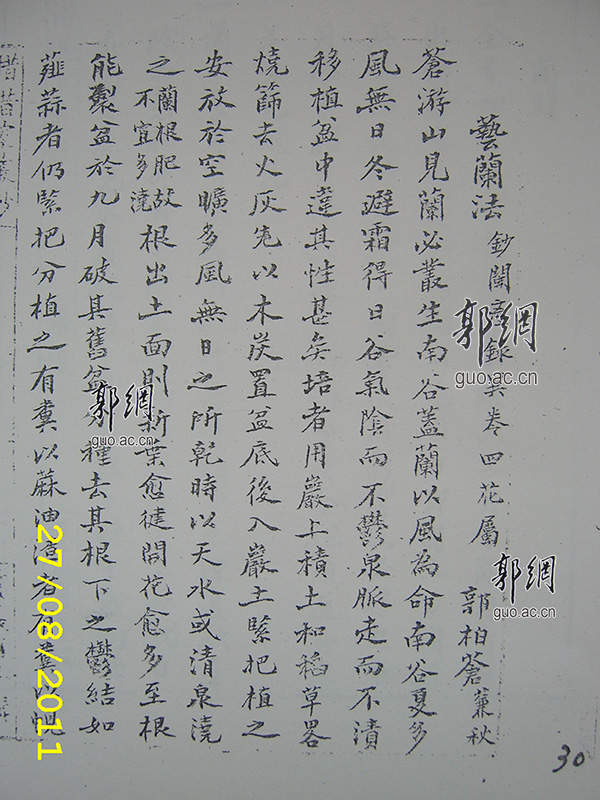 藝蘭法 鈔閩產錄異卷四花屬 郭柏蒼蒹秋
蒼游山見蘭必叢生南谷蓋蘭以風為命南谷夏多
風無日冬避霜得日谷氣陰而不鬱泉脈走而不漬
移植盆中違其性甚矣培者用巖上積土和稻草畧
燒篩去火灰先以木炭置盆底後入巖土緊把植之
安放於空曠多風無日之所乾時以天水或清泉澆
之蘭根肥故不宜多澆根出土面則新葉愈健開花愈多至根
能裂盆於九月破其舊盆分種去其根下之鬱結如
薤蒜者仍緊把分植之有糞以蔴油滓者有糞以蜆
guo.ac.cn
郭網
guo.ac.cn
郭網
guo.ac.cn
郭網
27/08/2011
30